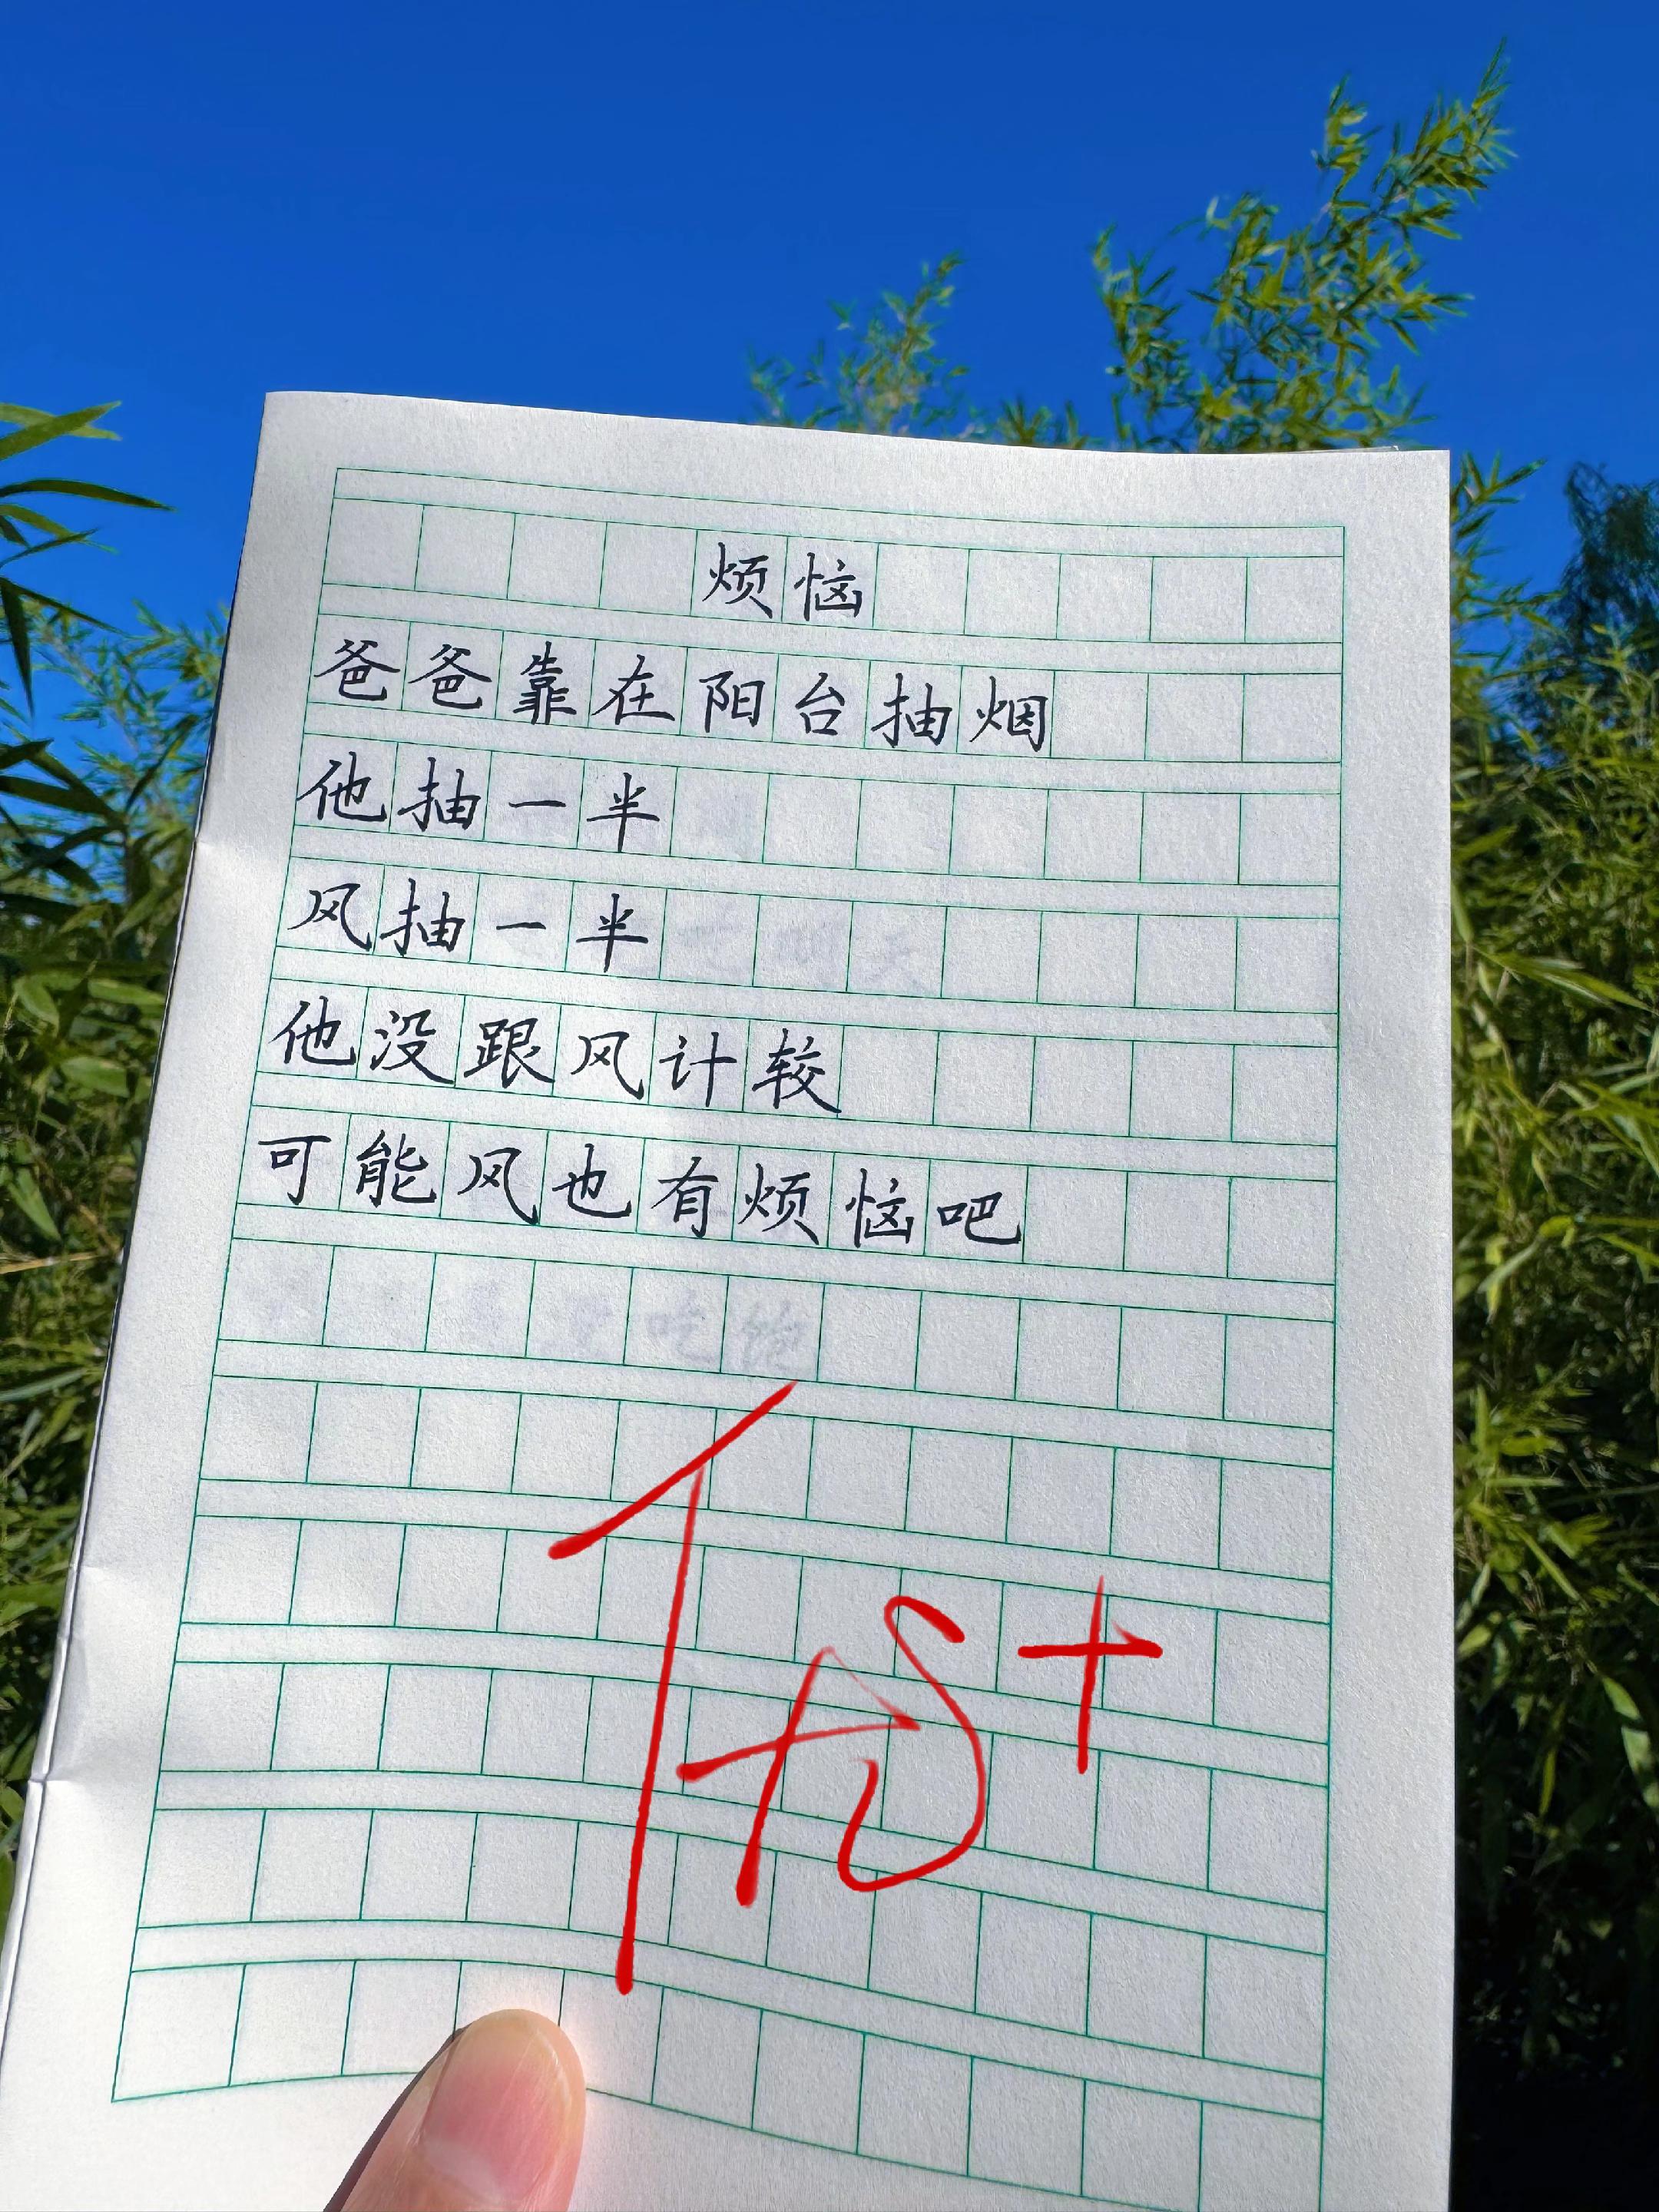 烦恼
爸爸靠在阳台抽烟
他抽一半
风抽一半
他没跟风计较
可能风也有烦恼吧